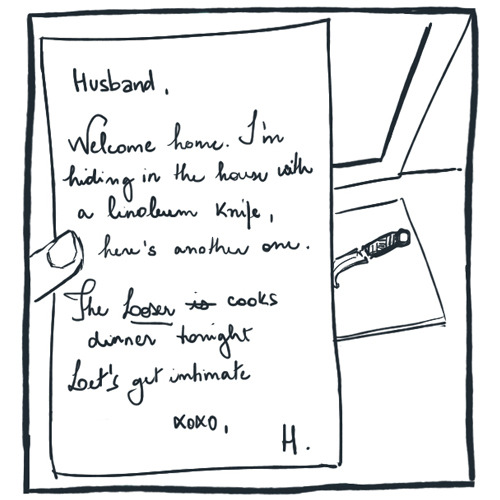 Husband,
Welcome home. I'm
hiding in the house with
a linoleum knife,
here's another one.
The Looser is cooks
dinner tonight
Let's get intimate
xoxo,
H.